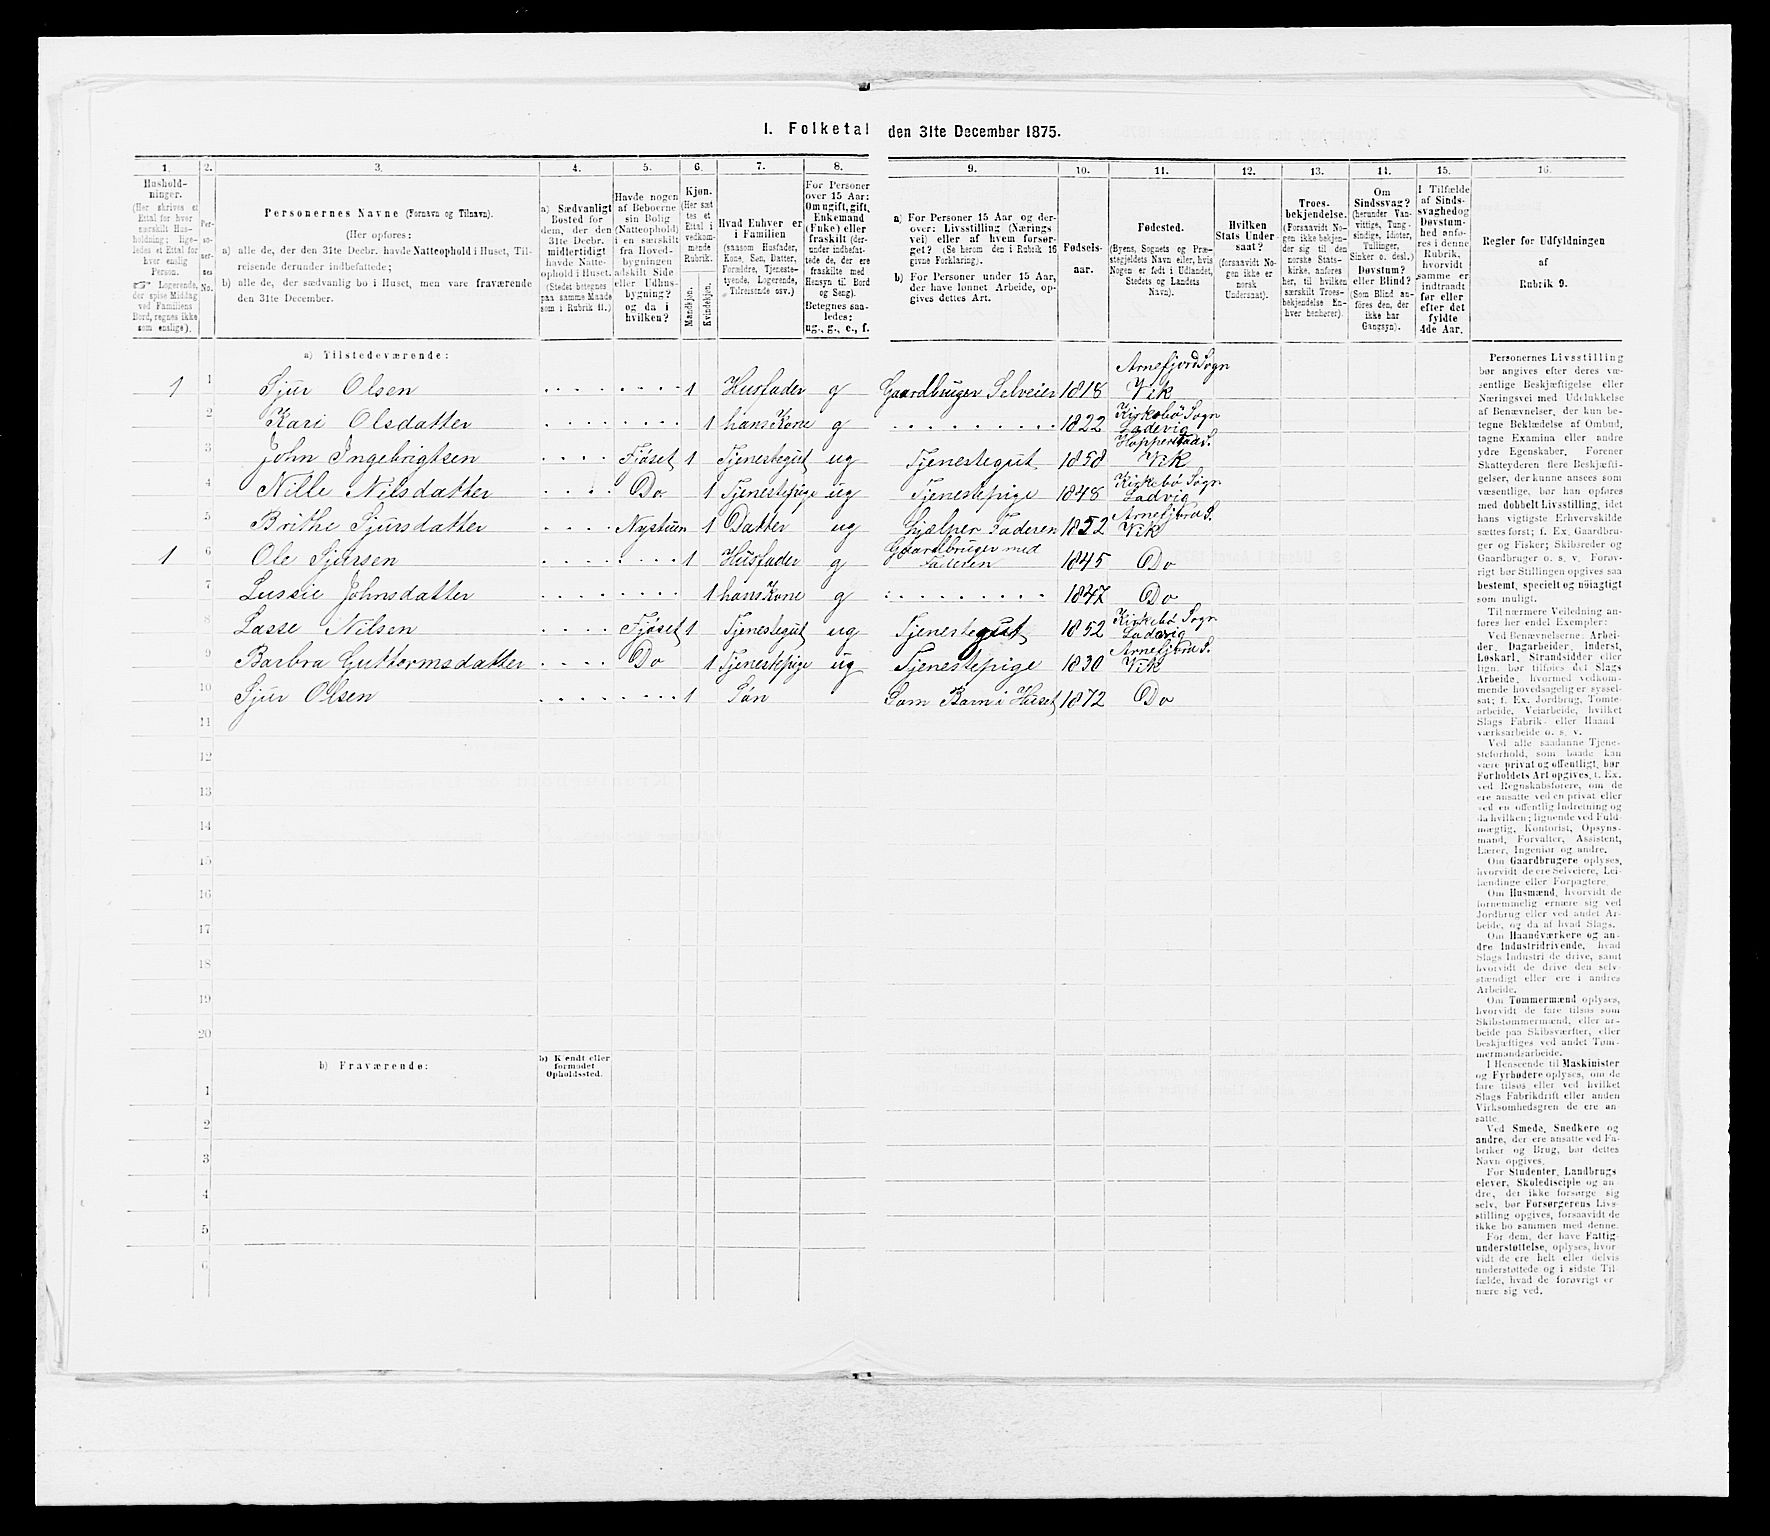 1. Folketal den 31te December 1875.
1. 2. 3. 4. 5. 6. 7. 8. 9. 10. 11. 12. 13. 14. 15. 16.
Hushold-
ninger.
(Her skrives et
Ettal for hver
særskilt Hus-
holdning; lige-
ledes et Ettal for
hver enslig
Person.
Logerende,
der spise Middag
ved Familiens
Bord, regnes ikke
som enslige).
Per-
so-
ner-
nes
No.
Personernes Navne (Fornavn og Tilnavn).
(Her opføres:
a) alle de, der den 31te Decbr. havde Natteophold i Huset, Til-
reisende derunder indbefattede;
b) alle de, der sædvanlig bo i Huset, men vare fraværende
den 31te December.
a) Sædvanligt
Bosted for
dem, der den
31te Decbr.
midlertidigt
havde Natte-
ophold i Huset.
(Stedet betegnes
paa samme Maade
som i Rubrik 11.)
Havde nogen
af Beboerne
sin Bolig
(Natteophold)
i en særskilt
fra Hoved-
bygningen
adskilt Side
eller Udhus-
bygning?
og da i
hvilken?
Kjøn.
(Her sæt
tes et
Ettal i
vedkom-
mende
Rubrik.
Mandkjøn.
Kvindekjøn.
Hvad Enhver er
i Familien
(saasom Husfader,
Kone, Søn, Datter,
Forældre, Tjeneste-
tyende, Logerende,
Tilreisende osv.)
For Personer
over 15 Aar:
Om ugift, gift,
Enkemand
(Enke) eller
fraskilt (der-
under indbefat-
tede de, der ere
fraskilte med
Hensyn til Bord
og Seng).
Betegnes saa-
ledes:
ug., g., e., f.
a) For Personer 15 Aar og der-
over: Livsstilling (Nærings
vei) eller af hvem forsør-
get? (Se herom den i Rubrik 16
givne Forklaring).
b) For Personer under 15 Aar,
der have lønnet Arbeide, op-
gives dettes Art.
Fødsels-
aar.
Fødested.
(Byens, Sognets og Præ-
stegjeldets Navn eller, hvis
Nogen er født i Udlandet,
Stedets og Landets
Navn).
Hvilken
Stats Under
saat?
(forsaavidt No-
gen ikke er
norsk
Undersaat).
Troes-
bekjendelse.
(Forsaavidt No-
gen ikke bekjen-
der sig til den
norske Stats-
kirke, anføres
her, til hvilken
særskilt Troes-
bekjendelse En-
hver henhører).
Om
Sindssvag?
(herunder Van-
vittige, Tung-
sindige, Idioter,
Tullinger,
Sinker o. desl.)
Døvstum?
eller Blind?
(Som Blind an-
føres den, der
ikke har
Gangsyn).
I Tilfælde
af Sinds-
svaghed og
Døvstum-
hed anfø-
res i denne
Rubrik,
hvorvidt
samme er
indtraadt
før eller
efter det
fyldte
4de Aar.
Regler for Udfyldningen
af
Rubrik 9.
a) Tilstedeværende:
1 1 Sjur Olsen 1 Husfader g Gaardbruger Selveier 1818 Arnefjord Sogn
Vik
2 Kari Olsdatter 1 hans Kone g 1822 Kirkebö Sogn
Ladevig
3 John Ingebrigtsen Fjöset 1 Tjenestegut ug Tjenestegut 1858 Hopperstad S.
Vik
4 Nille Nilsdatter Do 1 Tjenestepige ug Tjenestepige 1848 Kirkebö Sogn
Ladvig
5 Brithe Sjursdatter Nystuen 1 Datter ug hjælper Faderen 1852 Arnefjord S.
Vik
1 6 Ole Sjursen 1 Husfader g Gaardbruger med
Faderen 1845 Do
7 Lussie Johnsdatter 1 hans Kone g 1847 Do
8 Lasse Nilsen Fjöset 1 Tjenestegut ug Tjenestegut 1852 Kirkebö Sogn
Ladevig
9 Barbra Guttormsdatter Do 1 Tjenestepige ug Tjenestepige 1830 Arnefjord S.
Vik
10 Sjur Olsen 1 Sön Som Barn i Huset 1872 Do
11
12
13
14
15
16
17
18
19
20
b) Fraværende:
b) Kjendt eller
formodet
Opholdssted.
1
2
3
4
5
6
Personernes Livsstilling
bør angives efter deres væ-
sentlige Beskjæftigelse eller
Næringsvei med Udelukkelse
af Benævnelser, der kun be-
tegne Beklædelse af Ombud,
tagne Examina eller andre
ydre Egenskaber. Forener
Skatteyderen flere Beskjæfti-
gelser, der kunne ansees som
væsentlige, bør han opføres
med dobbelt Livsstilling, idet
hans vigtigste Erhvervskilde
sættes først; f. Ex. Gaardbru-
ger og Fisker; Skibsreder og
Gaardbruger o. s. v. Forøv-
rigt bør Stillingen opgives saa
bestemt, specielt og nøiagtigt
som muligt.
Til nærmere Veiledning an-
føres her endel Exempler:
Ved Benævnelserne: Arbei-
der, Dagarbeider, Inderst,
Løskarl, Strandsidder eller
lign. bør tilføies det Slags
Arbeide, hvormed vedkom-
mende hovedsagelig er syssel-
sat; f. Ex. Jordbrug, Tomte-
arbeide, Veiarbeide, hvilket
Slags Fabrik- eller Haand
værksarbeide o. s. v.
Ved alle saadanne Tjene-
steforhold, som baade kan
være privat og offentligt, bør
Forholdets Art opgives, f. Ex.
ved Regnskabsførere, om de
ere ansatte ved en privat eller
ved en offentlig Indretning og
da hvilken; lignende ved Fuld-
mægtig, Kontorist, Opsyns-
mand, Forvalter, Assistent,
Lærer, Ingeniør og andre.
Om Gaardbrugere oplyses,
hvorvidt de ere Selveiere, Lei-
lændinge eller Forpagtere.
Om Husmænd, hvorvidt de
fornemmelig ernære sig ved
Jordbrug eller ved andet Ar-
beide, og da af hvad Slags.
Om Haandværkere og an-
dre Industridrivende, hvad
Slags Industri de drive, samt
hvorvidt de drive den selv-
stændigt eller ere i andres
Arbeide.
Om Tømmermænd oplyses,
hvorvidt de fare tilsøs som
Skibstømmermænd, eller ar-
beide paa Skibsværfter, eller
beskjæftiges ved andet Tøm-
mermandsarbeide.
I Henseende til Maskinister
og Fyrbødere oplyses, om de
fare tilsøs eller ved hvilket
Slags Fabrikdrift eller anden
Virksomhedsgren de ere an-
satte.
Ved Smede, Snedkere og
andre, der ere ansatte ved Fa-
briker og Brug, bør dettes
Navn opgives.
For Studenter, Landbrugs
elever, Skoledisciple og an-
dre, der ikke forsørge sig
selv, bør Forsørgerens Livs-
stilling opgives, forsaavidt de
ikke bo sammen med denne.
For dem, der have Fattig-
understøttelse, oplyses, hvor-
vidt de ere helt eller delvis
understøttede og i sidste Til-
fælde, hvad de forøvrigt er
nære sig ved.